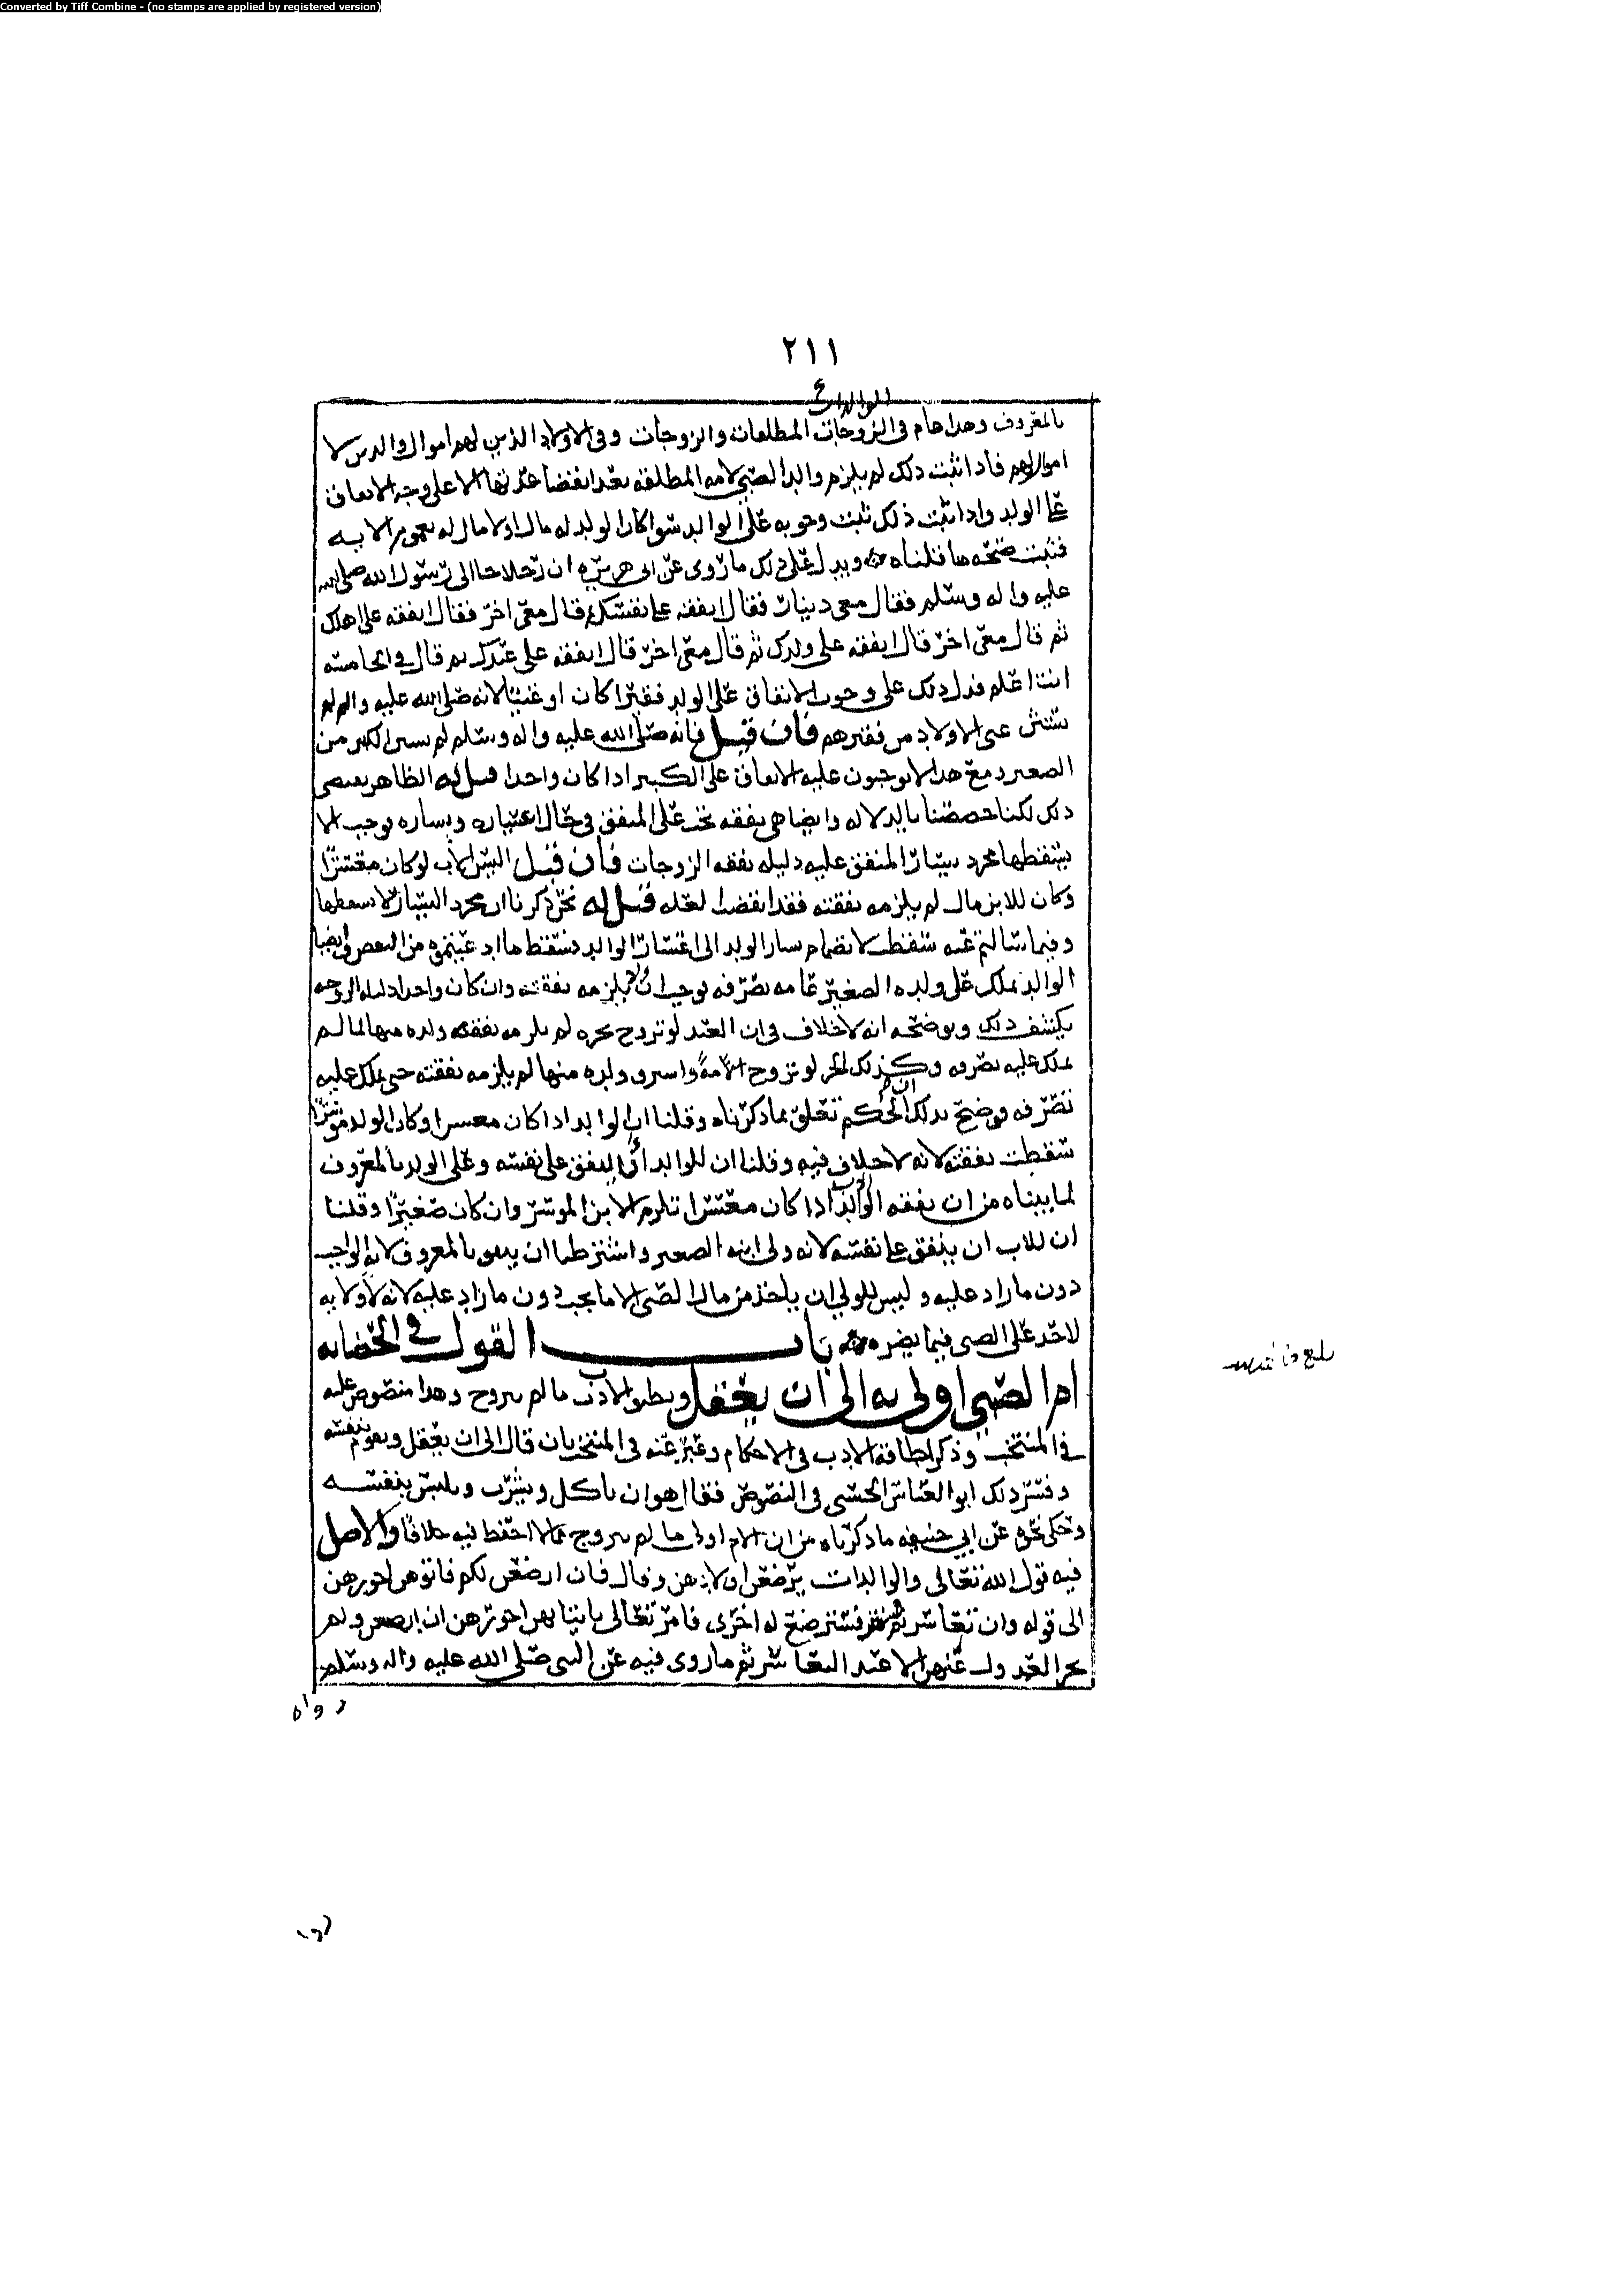 Converted by Tiff Combine - (no stamps are applied by registered version)
٢١١
الوالدات
بالمعروف وهذا عام في الزوجات المطلقات والزوجات وفي الاولاد الذين لهم اموال والذين لا
اموال لهم فاذا ثبت ذلك لم يلزم والد الصبي لامه المطلقة بعد انقضا عدتها الا على وجه الانفاق
على الولد واذا ثبت ذلك ثبت وجوبه على الوالد سوا كان الولد له مال او لا مال له بعموم الايه
فثبت صحة ما قلناه ويدل على ذلك ما روي عن ابي هريره ان رجلا جا الى رسول الله صلى الله
عليه واله وسلم فقال معي دينار فقال انفقه على نفسك قال معي اخر فقال انفقه على اهلك
ثم قال معي اخر قال انفقه على ولدك ثم قال معي اخر قال انفقه على عبدك ثم قال في الخامسة
انت اعلم فدل ذلك على وجوب الانفاق على الولد فقيرا كان او غنيا لانه صلى الله عليه واله لم
يستثن غني الاولاد من فقيرهم فان قيل فانه صلى الله عليه واله وسلم لم يميز الكبير من
الصغير ومع هذا لا توجبون عليه الانفاق على الكبير اذا كان واجدا قيل له الظاهر يقتضي
ذلك لكنا خصصنا بالدلاله وايضا هي نفقه تجب على المنفق في حال اعساره ويساره فوجب الا
يسقطها مجرد يسار المنفق عليه دليله نفقه الزوجات فان قيل اليس الاب لو كان معسرا
وكان للابن مال لم يلزمه نفقته فقد انتقض لعله قيل له نحن ذكرنا ان مجرد اليسار لا يسقطها
وفيما سالتم عنه سقطت لانضمام يسار الولد الى اعسار الوالد فسقط ما اد عيتموه من النقض وايضا
الوالد يملك على ولده الصغير عامه تصرفه فوجب ان يلزمه نفقته وان كان واجدا دليله الزوجه
يكشف ذلك ويوضحه انه لا خلاف في ان العبد لو تزوج بحره لم يلزمه نفقه ولده منها لما لم
يملك عليه تصرفه وكذلك الحر لو تزوج الامه واسترق ولده منها لم يلزمه نفقته حتى يملك عليه
تصرفه فوضح بذلك ان الحكم تعلق بما ذكرناه وقلنا ان الوالد اذا كان معسرا وكان الولد موسرا
سقطت نفقته لانه لا خلاف فيه وقلنا ان للوالد ان ينفق على نفسه وعلى الولد بالمعروف
لما بيناه من ان نفقه الوالد اذا كان معسرا تلزم الابن الموسر وان كان صغيرا وقلنا
ان للاب ان ينفق على نفسه لانه ولي ابنه الصغير واشترطنا ان ينفق بالمعروف لانه الواجب
دون ما زاد عليه وليس للولي ان ياخذ من مال الصبي الا ما يجب دون ما زاد عليه لانه لا ولايه
لاحد على الصبي فيما يضره باب القول في الحضانه
ام الصبي اولى به الى ان يعقل ويطيق الادب ما لم تزوج وهذا منصوص عليه
في المنتخب وذكر اطاقه الادب في الاحكام وعبر عنه في المنتخب بان قال الى ان يعقل ويقوم بنفسه
وفسر ذلك ابو العباس الحسني في النصوص فقال هو ان ياكل ويشرب ويلبس بنفسه
وحكى نحوه عن ابي حنيفه ما ذكرناه من ان الام اولى ما لم تزوج مما لا احفظ فيه خلافا والاصل
فيه قول الله تعالى والوالدات يرضعن اولادهن وقال فان ارضعن لكم فاتوهن اجورهن
الى قوله وان تعاسرتم فسترضع له اخرى فامر تعالى بايتايهن اجورهن ان ارضعن ولم
يجز العدول عنهن الا عند التعاسر ثم ما روي فيه عن النبي صلى الله عليه واله وسلم
رواه